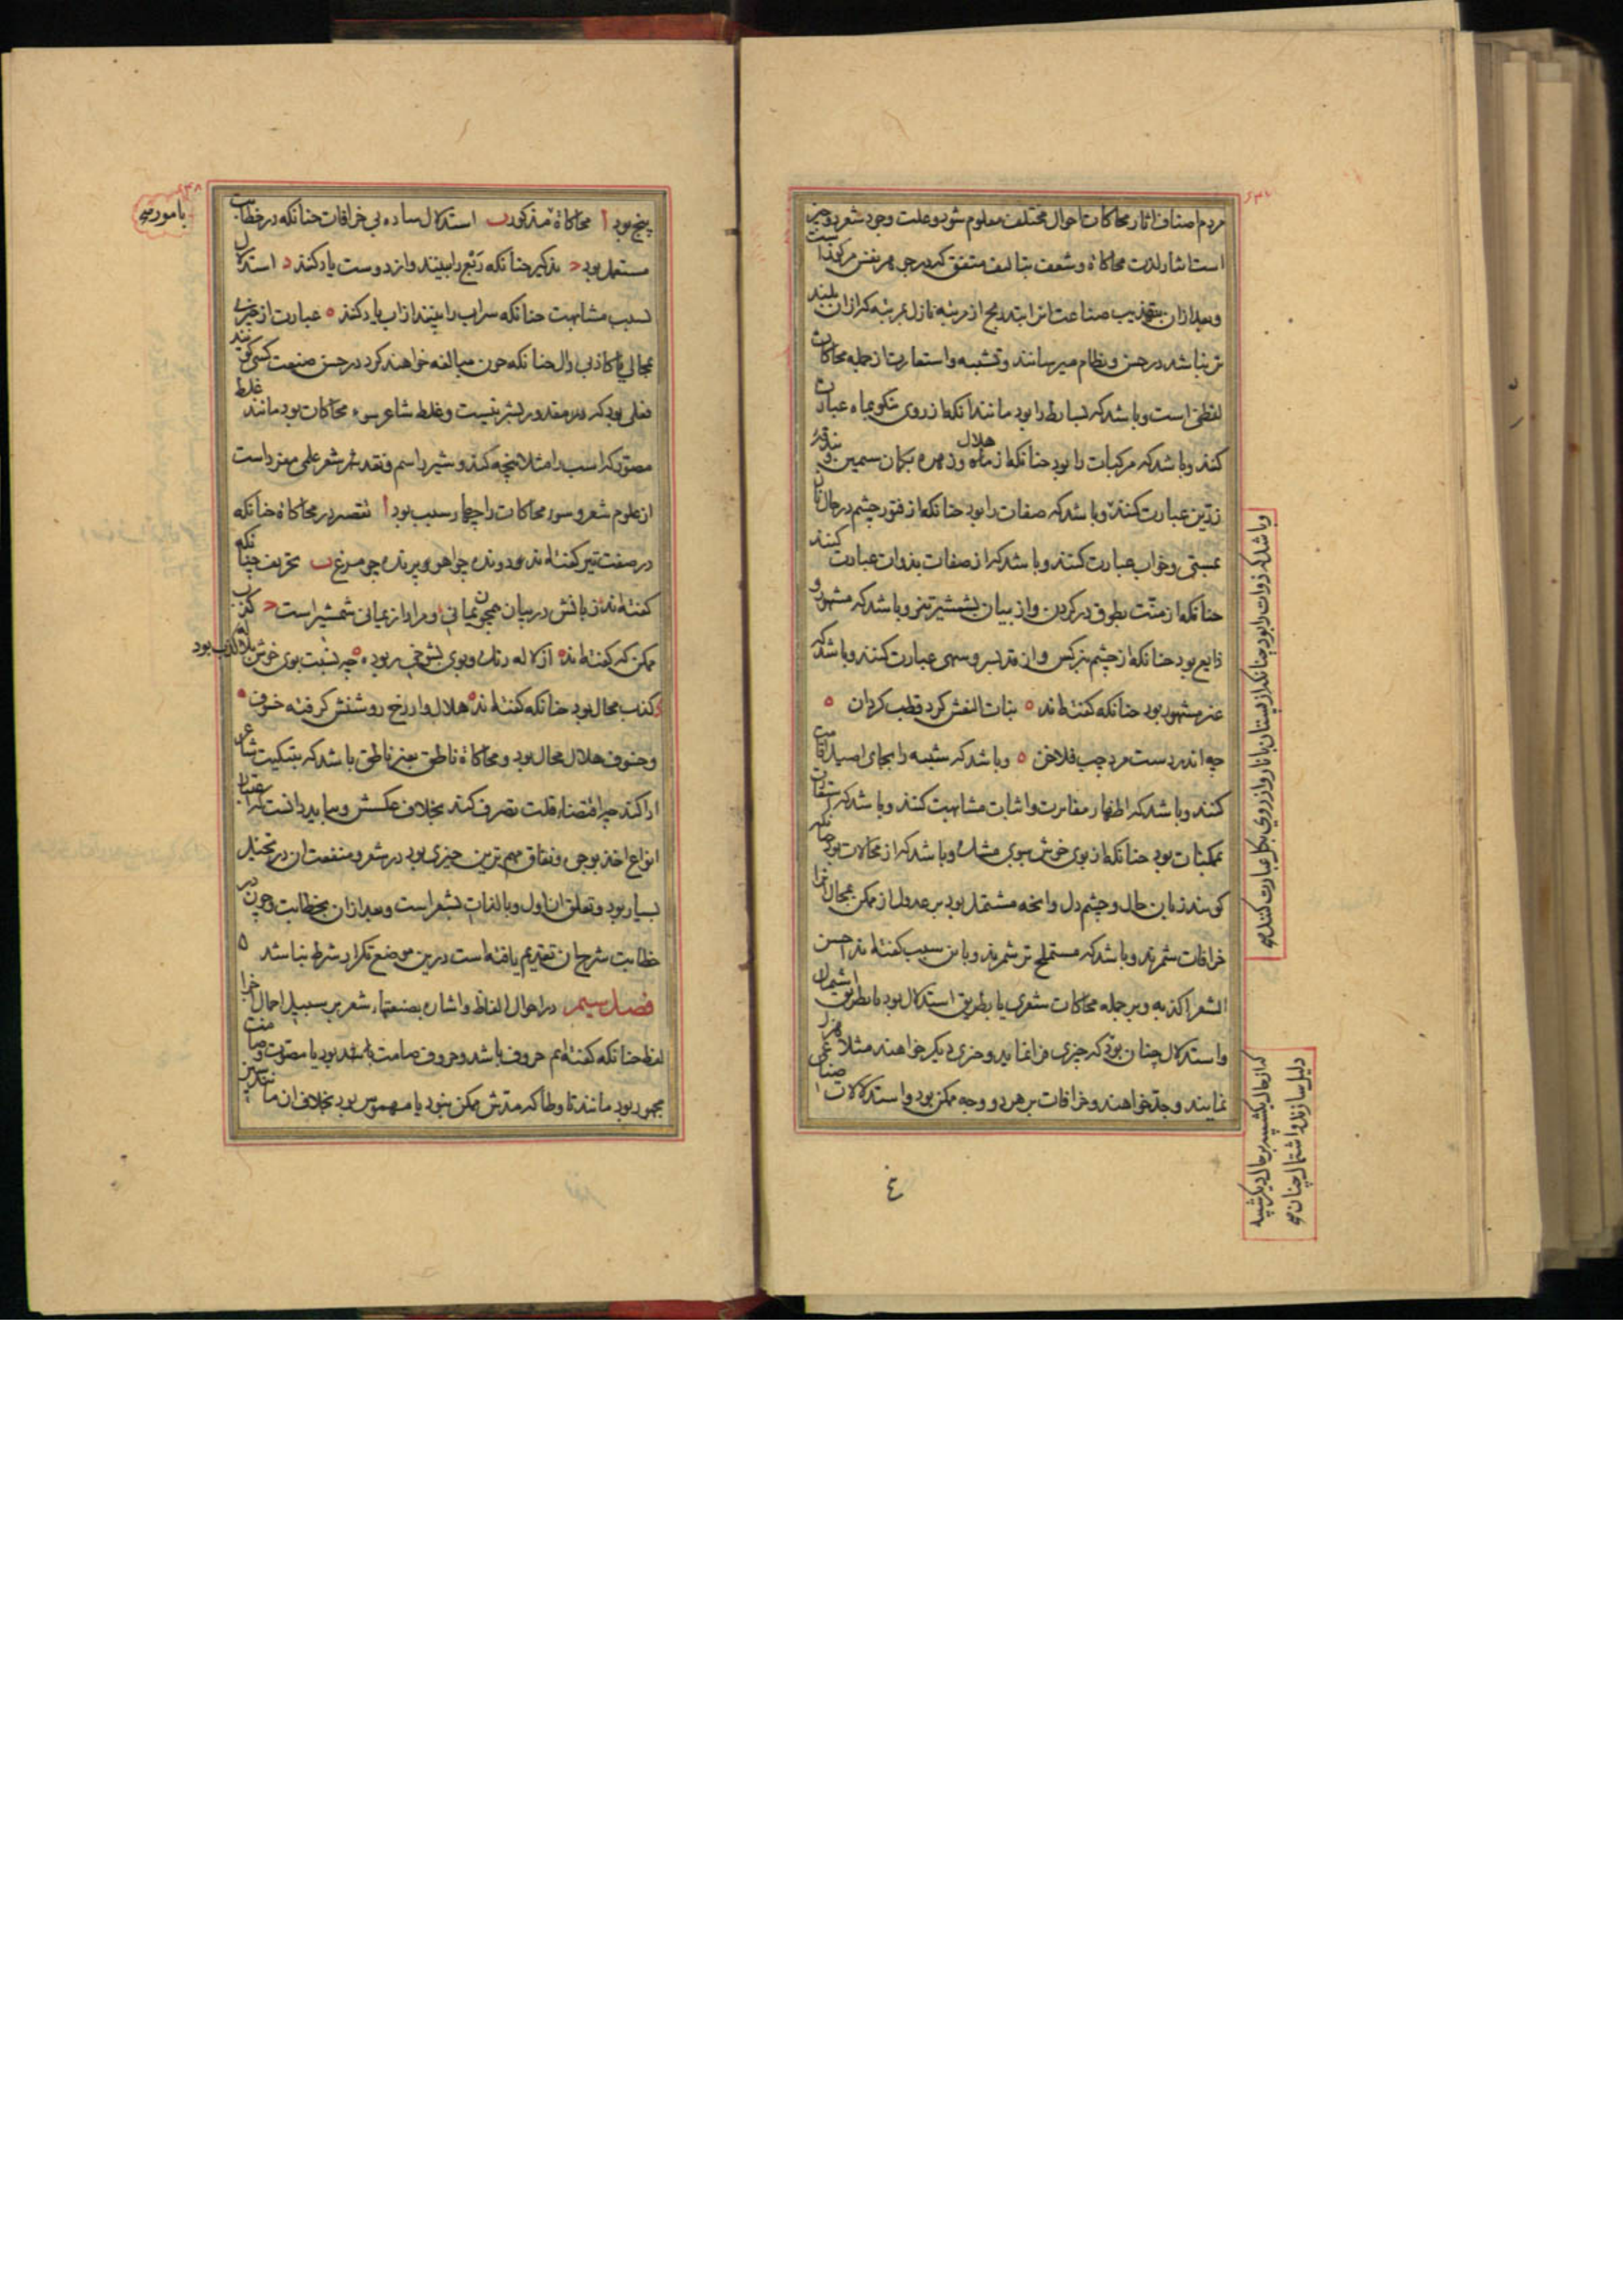 مردم اصناف اثار محاکات احوال مختلف معلوم شود و علت وجود شعر دو چیز
است ایثار لذت محاکاة و شعف بتالیف متفق که در جوهر نفس مرکوز است
و بعد ازان بتهذیب صناعت انرا بتدریج از مرتبه نازل بمرتبه که ازان بلند
تر نباشد در حسن و نظام میرسانند و تشبیه و استعارت از جمله محاکات
لفظی است و باشد که بسایط را بود مانند انکه از روی نیکو بماه عبارت
کنند و باشد که مرکبات را بود چنانکه از هلال و زهره بکمان سیمین و بندقه
زرین عبارت کنند و باشد که صفات را بود چنانکه از فتور چشم در حال ناز
بمستی و خواب عبارت کنند و باشد که از صفات بذوات عبارت کنند
چنانکه از منت بطوق در کردن و از بیان بشمشیر تیز و باشد که مشهور و
ذایع بود چنانکه از چشم بنرکس و از قد بسرو سهی عبارت کنند و باشد که
غیر مشهور بود چنانکه کفته‌اند ه بنات النعش کرد قطب کردان ه
چه اندر دست مرد چپ فلاخن ه و باشد که شبیه را بجای اصیل اقامت
کنند و باشد که اظهار مغایرت و اثبات مشابهت کنند و باشد که استیفان
ممکنات بود چنانکه از بوی خوش ببوی مشک و باشد که از محالات بود چنانکه
کویند زبان حال و چشم دل و انچه مشتمل بود بر عدول از ممکن بمحال انرا
خرافات شمرند و باشد که مستملح تر شمرند و باین سبب کفته‌اند احسن
الشعر اکذبه و بر جمله محاکات شعری یا بطریق استدلال بود یا بطریق اشتمال
و استدلال چنان بود که چیزی فرا نمایند و چیزی دیکر خواهند مثلا هزل
نمایند و جد خواهند و خرافات بر هر دو وجه ممکن بود و استدلالات صناعی
و باشد که ذوات را بود چنانکه از پستان بانار و از روی بکل عبارت کنند صح
که از حال یک شبیه بر حال دیکر شبیه
دلیل سازند و اشتمال چنان صح
٤
پنج بود ا محاکاة مذکور ب استدلال ساده بی خرافات چنانکه در خطابت
مستعمل بود ج تذکیر چنانکه ربع را بینند و ازو دوست یاد کنند د استدلال
بسبب مشابهت چنانکه سراب را بینند از اب یاد کنند ه عبارت از چیزی
بمحالی یا کاذبی دال چنانکه چون مبالغه خواهند کرد در حسن صنعت کسی کویند
فعلی بود که در مقدور بشر نیست و غلط شاعر سوء محاکات بود مانند غلط
مصور که اسب را مثلا پنجه کند و شیر را سم و نقد شعر علمی مفرد است
از علوم شعر و سوء محاکات را چهار سبب بود ا تقصیر در محاکاة چنانکه
در صفت تیر کفته‌اند ه دونده چو اهو و پرنده چو مرغ ب تحریف چنانکه
کفته‌اند زبانش در بیان همچون یمانی و مراد از یمانی شمشیر است ج کذب
ممکن که کفته‌اند ه از لاله رنک و بوی بشوخی ربوده ه چه نسبت بوی خوش بلاله کذب بود
د کذب محال بود چنانکه کفته‌اند ه هلال وار رخ روشنش کرفته خسوف ه
و خسوف هلال محال بود و محاکاة ناطق بغیر ناطق باشد که بتبکیت شاعر
ادا کند چه اقتضاء قلت تصرف کند بخلاف عکسش و بباید دانست که اعتبار
انواع اخذ بوجوه و نفاق مهم ترین چیزی بود در شعر و منفعت ان در تخییل
بسیار بود و تعلق ان اول و بالذات بشعر است و بعد ازان بخطابت و چون در
خطابت شرح ان تقدیم یافته است درین موضع تکرار شرط نباشد ه
فصل سیم در احوال الفاظ و اشاره بصنعتهاء شعر بر سبیل اجمال اجزا
لفظ چنانکه کفته‌ایم حروف باشد و حروف صامت باشد بود یا مصوت و صامت
مجهور بود مانند تا و طا که مدش ممکن نبود یا مهموس بود بخلاف ان مانند سین
بامور صح